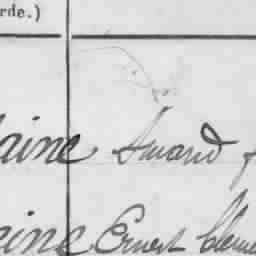 rde.)
aine Suard f
aine Ernest Cleme